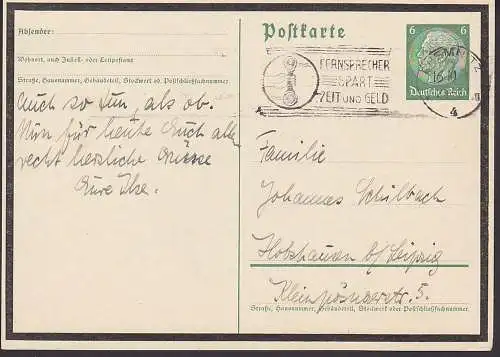 Absender:
Postkarte
6 6
Wohnort, auch Zustell- oder Leitpostamt
FERNSPRECHER
SPART
ZEIT UND GELD
Deutsches Reich
4
Straße, Hausnummer, Gebäudeteil, Stockwerk od. Postschließfachnummer
Euch so tun, als ob.
Nun für heute Euch allen
recht herzliche Grüsse
Eure Ilse.
Familie
Johannes Schilbach
Holzhausen b/Leipzig
Kleinpösnaerstr. 5.
Straße, Hausnummer, Gebäudeteil, Stockwerk oder Postschließfachnummer